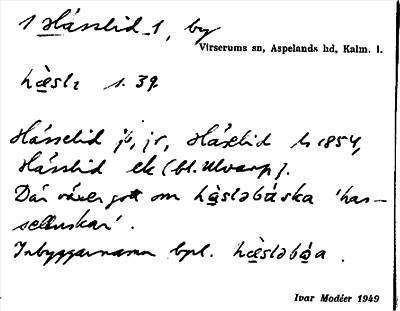 1 Hässlid 1, by
Virserums sn, Aspelands hd, Kalm. l.
hä̀slɪ s. 39
Hässelid jb, jr, Hässlid h 1854,
Hässlid ek (bl. Ulvarp).
Där växer gott om hä̀sləbúska 'has-
selbuskar'.
Inbyggarnamn bpl. hä̀sləbóa.
Ivar Modéer 1949